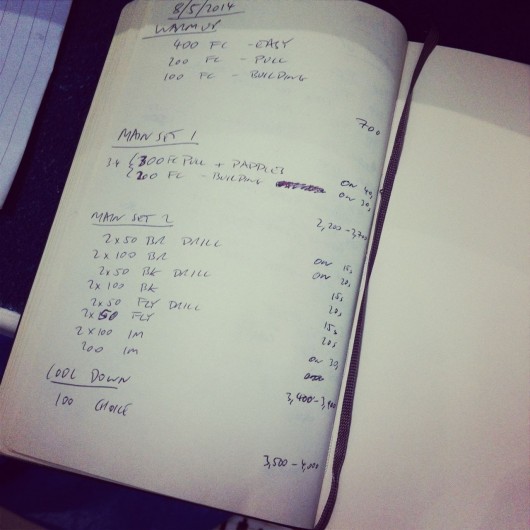 8/5/2014
WARM UP
400 FC - EASY
200 FC - PULL
100 FC - BUILDING
700
MAIN SET 1
3-4 { 300 FC PULL + PADDLES on 40s
{ 200 FC - BUILDING on 30s
2,200-2,700
MAIN SET 2
2 x 50 BR DRILL on 15s
2 x 100 BR on 20s
2 x 50 BK DRILL 15s
2 x 100 BK 20s
2 x 50 FLY DRILL 15s
2 x 50 FLY 20s
2 x 100 IM on 30s
200 IM
3,400-3,900
COOL DOWN
100 CHOICE
3,500-4,000